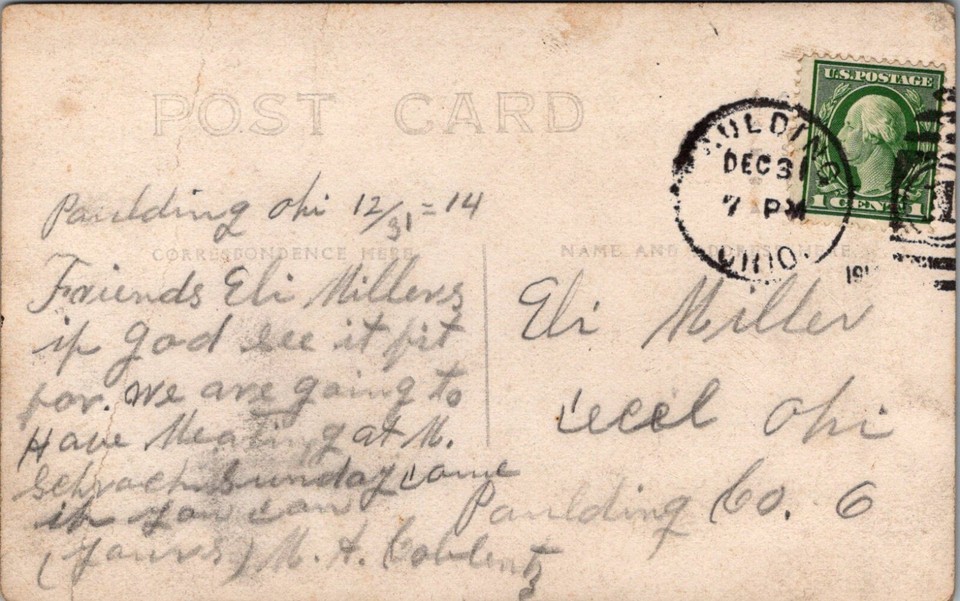 POST CARD
U.S. POSTAGE
1 CENT 1
PAULDING
DEC 31
7 PM
OHIO.
191
Paulding Ohi 12/31=14
CORRESPONDENCE HERE
NAME AND ADDRESS HERE
Friends Eli Millers
if god see it fit
for. we are going to
Have Meating at M.
Schrach Sunday come
if you can
(yours) M. A. Coblentz
Eli Miller
cecel Ohi
Paulding Co. 6